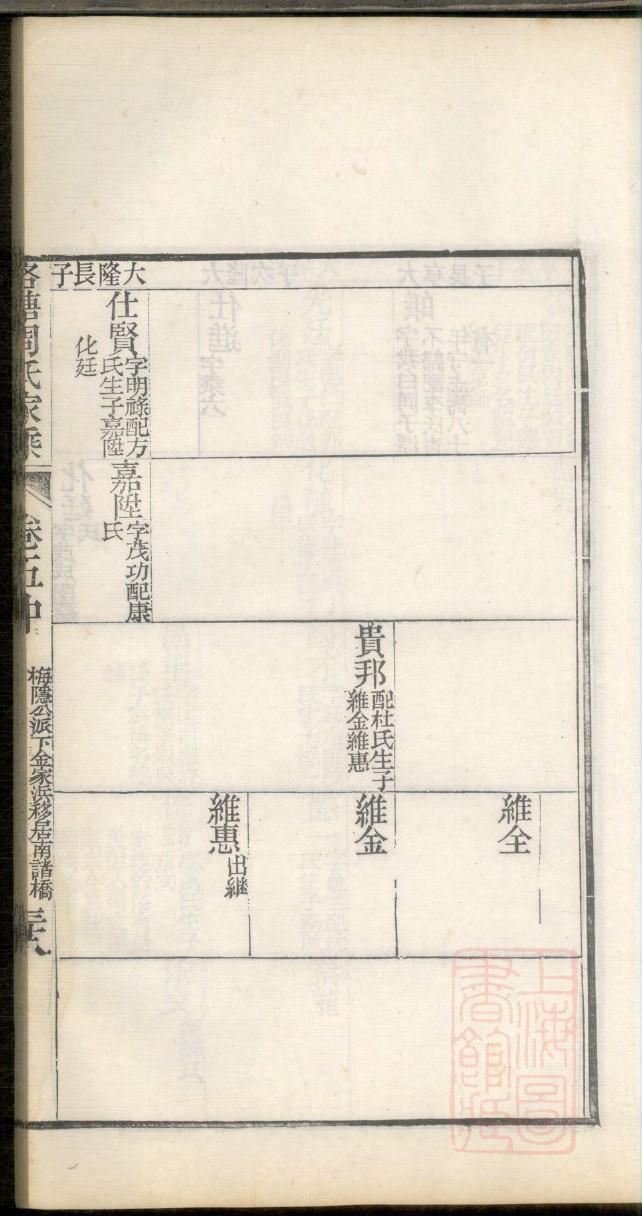 維全
貴邦
配杜氏生子
維金維惠
維金
維惠
出継
大隆長子
仕賢
字明祿配方
氏生子嘉陞
化廷
嘉陞
字茂功配康
氏
塘周氏家乘
卷五中
梅隱公派下金家浜移居南諸橋
三八
上海圖書館藏